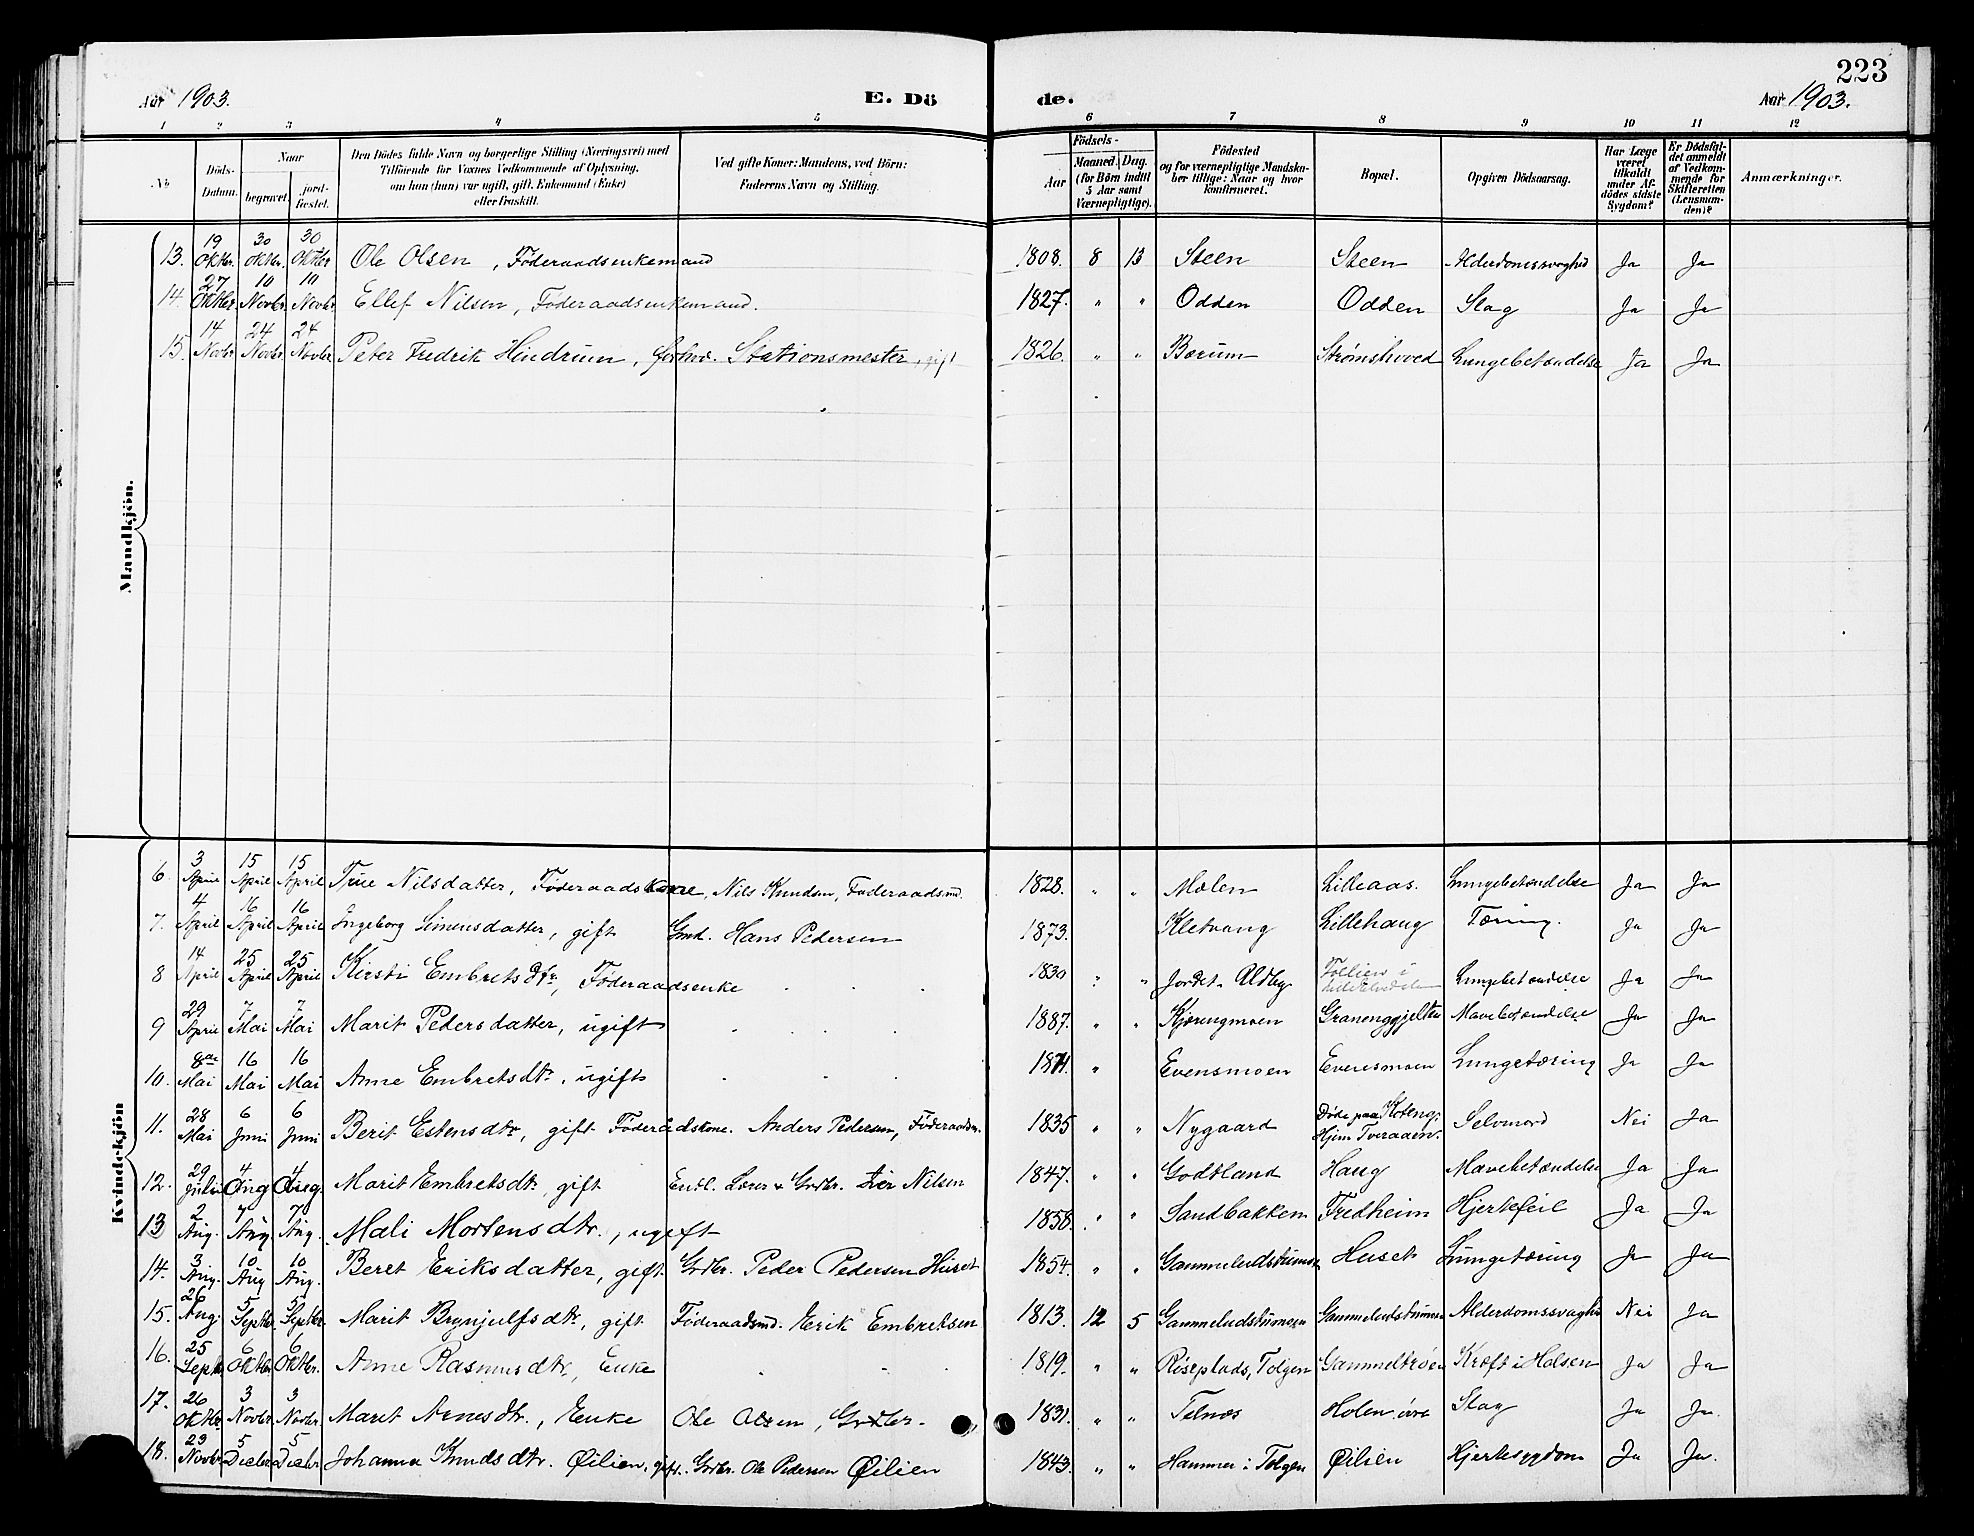 223
Aar 1903. E. Dö de. Aar 1903.
1 2 3 4 5 6 7 8 9 10 11 12
No
Döds-Datum.
Naar begravet. jord-fæstet.
Den Dödes fulde Navn og borgerlige Stilling (Næringsvei) med
Tilföiende for Voxnes Vedkommende af Oplysning,
om han (hun) var ugift, gift, Enkemand (Enke)
eller fraskilt.
Ved gifte Koner: Mandens, ved Börn:
Faderens Navn og Stilling.
Födsels-
Aar Maaned. Dag.
(for Börn indtil
5 Aar samt
Værnepligtige).
Födested
og for værnepligtige Mandska-
ber tillige: Naar og hvor
konfirmeret.
Bopæl.
Opgiven Dödsaarsag.
Har Læge
været
tilkaldt
under Af-
dödes sidste
Sygdom?
Er Dödsfal-
det anmeldt
af Vedkom-
mende for
Skifteretten
(Lensman-
den)?
Anmærkninger.
Mandkjön.
13. 19 Oktbr. 30 Oktbr. 30 Oktbr Ole Olsen, Føderaadsenkemand 1808. 8 13 Steen Steen Alderdomssvaghed Ja Ja
14. 27 Oktbr 10 Novbr. 10 Novbr Ellef Nilsen, Føderaadsenkemand. 1827. " " Odden Odden Slag Ja Ja
15. 14 Novbr 24 Novbr 24 Novbr Peter Fredrik Hindrum, forhv. Stationsmester, gift 1826. " " Bærum Strømshoved Lungebetændelse Ja Ja
Kvindekjön
6. 3 April 15 April 15 April Nilsdatter, Føderaadskone, Nils Knudsen, Føderaadsmd. 1828. " " Mælen Lilleaas. Lungebetændelse Ja Ja
7. 4 April 16 April 16 April Ingeborg Simensdatter, gift Gmd. Hans Pedersen 1873. Kletvang Lillehaug Tæring. Ja Ja
8 14 April 25 April 25 April Kirsti Embretsdtr, Føderaadsenke 1830 " " Jordet. Aldby Føllien i Lungebetændelse Ja Ja
9 29 April 7 Mai 7 Mai Marit Pedersdatter, ugift 1887. " " Kjærengmoen Mavebetændelse Ja Ja
10. 8de Mai 16 Mai 16 Mai Anne Embretsdtr, ugift " Evensmoen Evensmoen Lungetæring Ja Ja
11. 28 Mai 6 Juni 6 Juni Berit Estensdtr, gift Føderaadskone. Anders Pedersen, Føderaadsm. 1835 " " Nygaard Døde paa Koteng. Hjem Tveraaen. Selvmord Nei Ja
12. 29 Juli 4 Aug 4 Aug. Marit Embretsdtr, gift Lærer & Grdbr. Iver Nilsen 1847. " " Godtland Haug Mavebetændelse Ja Ja
13 2 Aug. 7 Aug 7 Aug. Mali Mortensdtr., ugift 1858. " " Sandbakken Fredheim Hjertefeil Ja Ja
14. 3 Aug. 10 Aug 10 Aug. Beret Eriksdatter, gift Grdbr. Peder Pedersen Huset 1854. " " Huset Lungetæring Ja Ja
15. 26 Aug. 5 Septbr. 5 Septbr. Marit Brynjulfsdtr, gift Føderaadsmd. Erik Embretsen 1813. 12 5 Alderdomssvaghed Nei Ja
16. 25 Septbr 6 Oktbr 6 Oktbr. Anne Rasmusdtr, Enke 1819. " " Røseplads, Tolgen Gammeltrøen Kræft i Halsen Ja Ja
17. 26 Oktbr 3 Novbr 3 Novbr Marit Arnesdtr., Enke Ole Olsen, Grdbr. 1831. " " Telnæs Holen øvre Slag Ja Ja.
18. 23 Novbr 5 Decbr 5 Decbr Johanna Knudsdtr. Øilien, gift. Grdbr. Ole Pedersen Øilien 1843. " " Hammer i Tolgen Øilien Hjertesygdom Ja Ja.